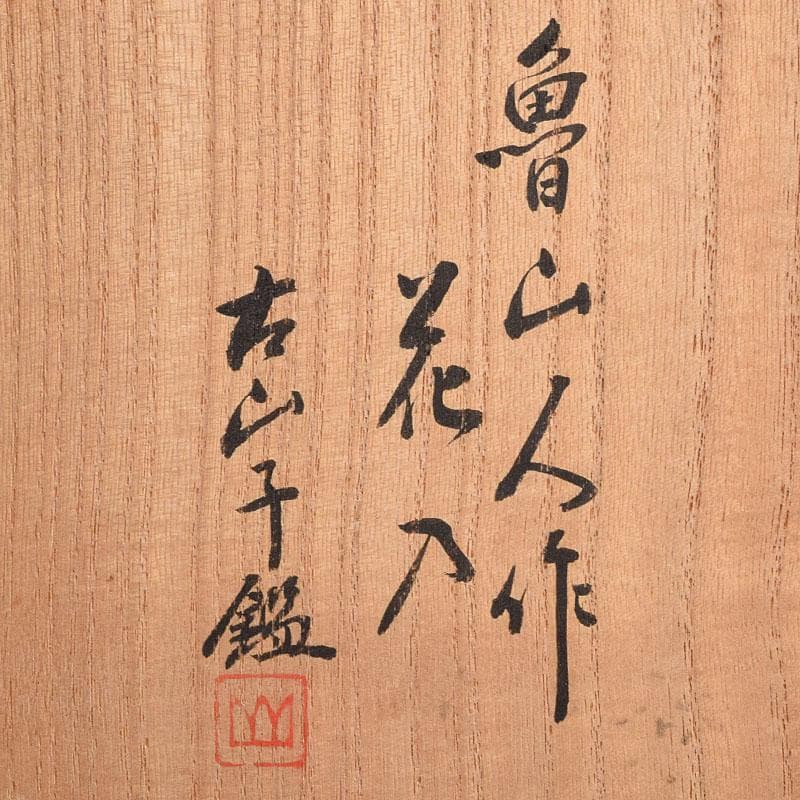 魯山人作
花入
古山子鑑
山